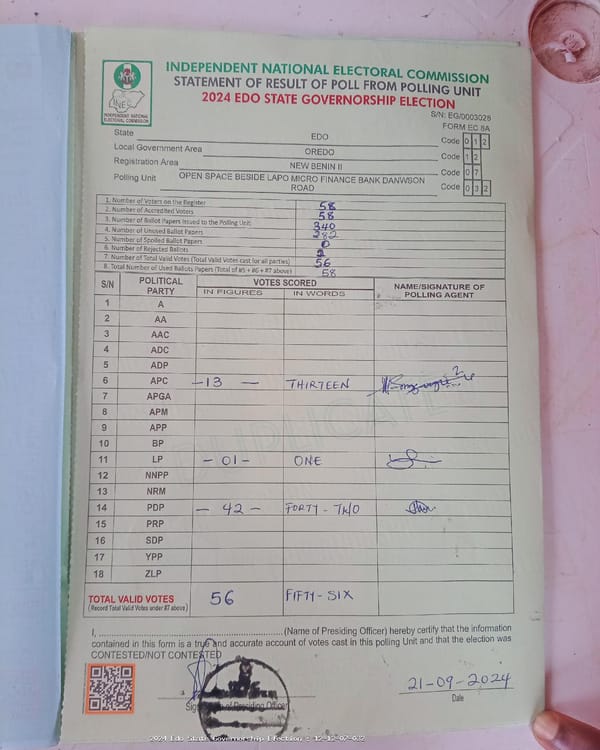 INDEPENDENT NATIONAL ELECTORAL COMMISSION
STATEMENT OF RESULT OF POLL FROM POLLING UNIT
2024 EDO STATE GOVERNORSHIP ELECTION
INEC
INDEPENDENT NATIONAL ELECTORAL COMMISSION
S/N: EG/0003028
FORM EC 8A
State EDO Code 0 1 2
Local Government Area OREDO Code 1 2
Registration Area NEW BENIN II Code 0 7
Polling Unit OPEN SPACE BESIDE LAPO MICRO FINANCE BANK DANWSON ROAD Code 0 3 2
1. Number of Voters on the Register 58
2. Number of Accredited Voters 58
3. Number of Ballot Papers Issued to the Polling Unit 340
4. Number of Unused Ballot Papers 282
5. Number of Spoiled Ballot Papers 0
6. Number of Rejected Ballots 2
7. Number of Total Valid Votes (Total Valid Votes cast for all parties) 56
8. Total Number of Used Ballots Papers (Total of #5 + #6 + #7 above) 58
S/N POLITICAL PARTY VOTES SCORED NAME/SIGNATURE OF POLLING AGENT
IN FIGURES IN WORDS
1 A
2 AA
3 AAC
4 ADC
5 ADP
6 APC -13- THIRTEEN
7 APGA
8 APM
9 APP
10 BP
11 LP -01- ONE
12 NNPP
13 NRM
14 PDP -42- FORTY-TWO
15 PRP
16 SDP
17 YPP
18 ZLP
DUPLICATE
TOTAL VALID VOTES 56 FIFTY-SIX
(Record Total Valid Votes under #7 above)
I, (Name of Presiding Officer) hereby certify that the information
contained in this form is a true and accurate account of votes cast in this polling Unit and that the election was
CONTESTED/NOT CONTESTED
21-09-2024
Signature of Presiding Officer Date
2024 Edo State Governorship Election : 12-12-07-032